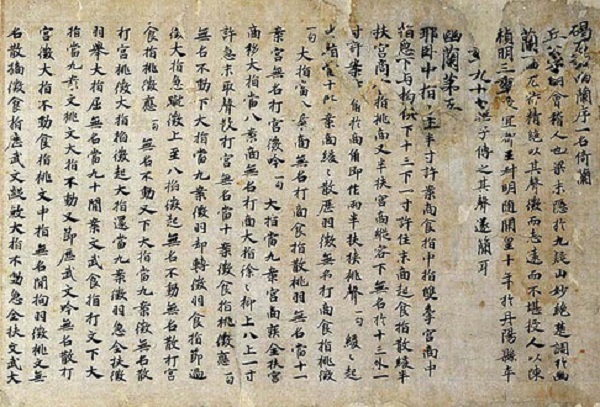 碣石調幽蘭序一名倚蘭
丘公字明會稽人也梁末隱於九疑山妙絕楚調於幽
蘭一曲尤特精絕以其聲微而志遠而不堪授人以陳
禎明三年授宜都王叔明隨開皇十年於丹陽縣卒
年九十七無子傳之其聲遂簡耳
幽蘭第五
耶臥中指十上半寸許案商食指中指雙牽宮商中
指急下與拘俱下十三下一寸許住末商起食指散緩半
扶宮商食指挑商又半扶宮商縱容下無名於十三外一
寸許案商角於商角即作兩半扶挾挑聲一句緩緩起
無名八案商緩緩散歷羽徵無名打商食指挑徵
一句大指當八案商無名打商食指散挑羽無名當十一
案宮無名打宮徵吟一句大指當九案宮商疾全扶宮
商移大指當八案商無名打商大指徐徐抑上八上一寸
許急末取聲散打宮無名當十案徵食指挑徵應一句
無名不動下大指當九案徵羽却轉徵羽食指節過
徵大指急蹴徵上至八拍徵起無名不動無名散打宮
食指挑徵應一句無名不動又下大指當九案徵羽
打宮挑徵大指拍徵起大指還當九案徵羽急全扶徵
羽舉大指屈無名當九十間案文武食指打文下大
指當九案文挑文大指不動又節歷武文吟無名散打
宮徵大指不動食指挑文中指無名間拘羽徵挑文無
名散摘徵食指歷武文大指不動急全扶文武大